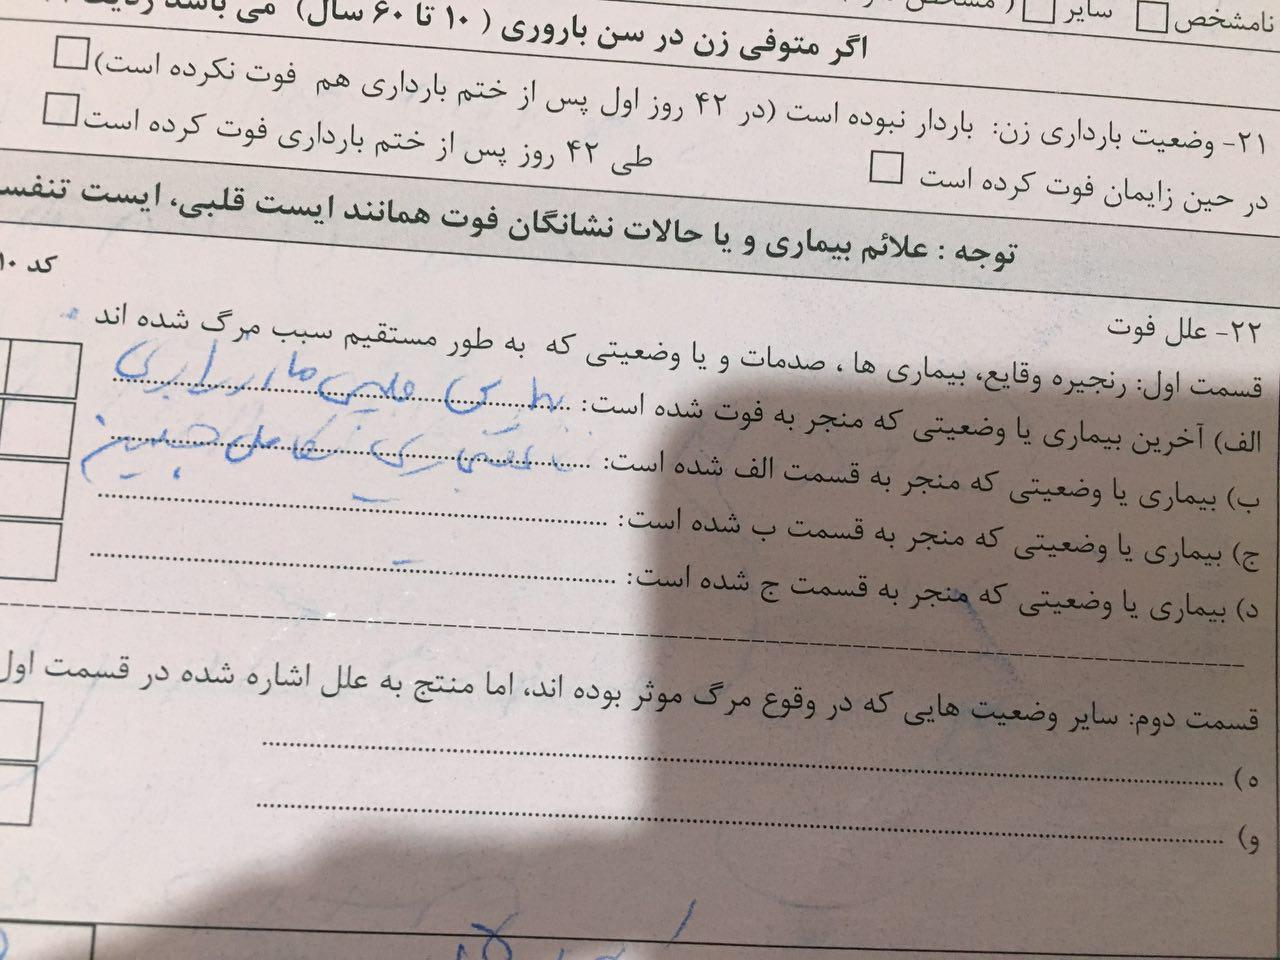 نامشخص □ سایر □ ( مشخص
اگر متوفی زن در سن باروری ( ۱۰ تا ۶۰ سال) می باشد ردیف
۲۱- وضعیت بارداری زن: باردار نبوده است (در ۴۲ روز اول پس از ختم بارداری هم فوت نکرده است) □
در حین زایمان فوت کرده است □ طی ۴۲ روز پس از ختم بارداری فوت کرده است □
توجه : علائم بیماری و یا حالات نشانگان فوت همانند ایست قلبی، ایست تنفس
۲۲- علل فوت
کد ۱۰
قسمت اول: رنجیره وقایع، بیماری ها ، صدمات و یا وضعیتی که به طور مستقیم سبب مرگ شده اند
الف) آخرین بیماری یا وضعیتی که منجر به فوت شده است:
ب) بیماری یا وضعیتی که منجر به قسمت الف شده است: تکامل جنین
ج) بیماری یا وضعیتی که منجر به قسمت ب شده است:
د) بیماری یا وضعیتی که منجر به قسمت ج شده است:
قسمت دوم: سایر وضعیت هایی که در وقوع مرگ موثر بوده اند، اما منتج به علل اشاره شده در قسمت اول
ه)
و)